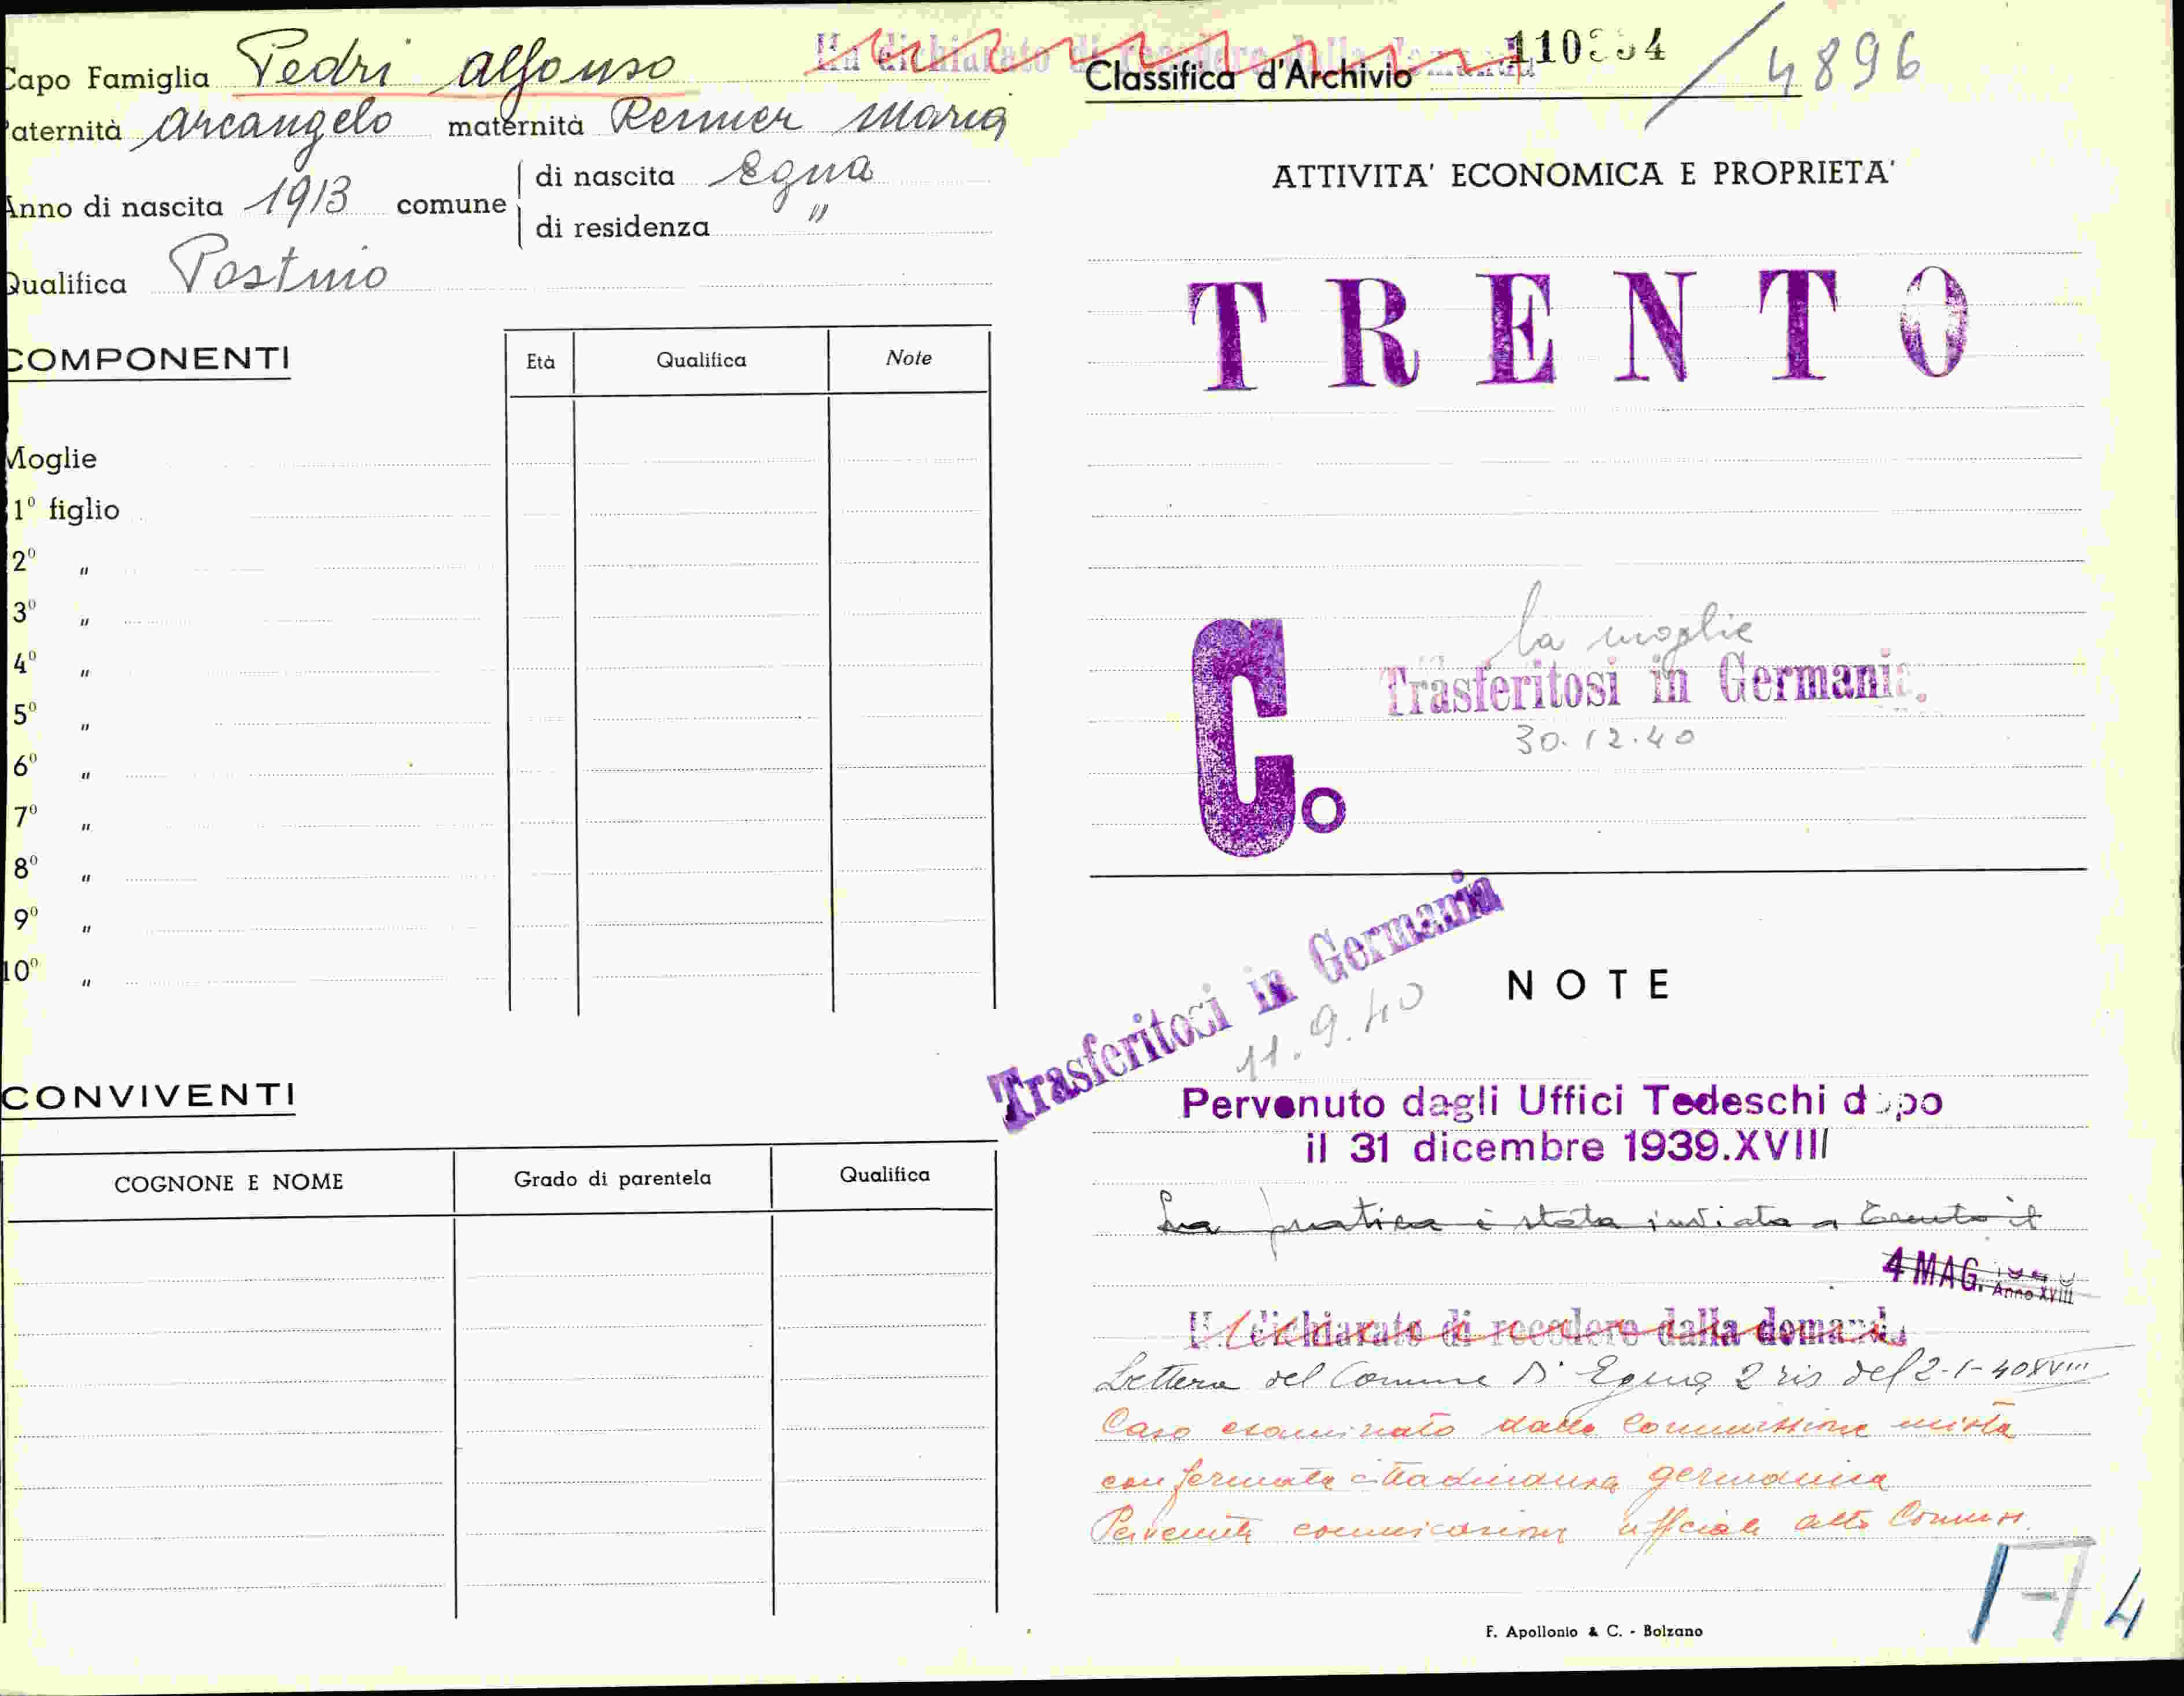 Capo Famiglia Pedri Alfonso
Paternità Arcangelo maternità Renner Maria
Anno di nascita 1913 comune
di nascita Egna
di residenza "
Qualifica Postino
COMPONENTI
Età Qualifica Note
Moglie
1º figlio
2º "
3º "
4º "
5º "
6º "
7º "
8º "
9º "
10º "
CONVIVENTI
COGNONE E NOME Grado di parentela Qualifica
Ha dichiarato di recedere dalla domanda
Classifica d'Archivio 4896
ATTIVITA' ECONOMICA E PROPRIETA'
TRENTO
la moglie
Trasferitosi in Germania.
30.12.40
C.
Trasferitosi in Germania
11.9.40
NOTE
Pervenuto dagli Uffici Tedeschi dopo
il 31 dicembre 1939.XVIII
La pratica è stata inviata a Trento il
4 MAG. Anno XVIII
Ha dichiarato di recedere dalla domanda
Lettera del Comune di Egna 2 ris del 2-1-40 XVIII
Caso esaminato dalla Commissione mista
confermata cittadinanza germanica
Pervenuta comunicazione ufficiale alto Commiss.
4
F. Apollonio & C. - Bolzano